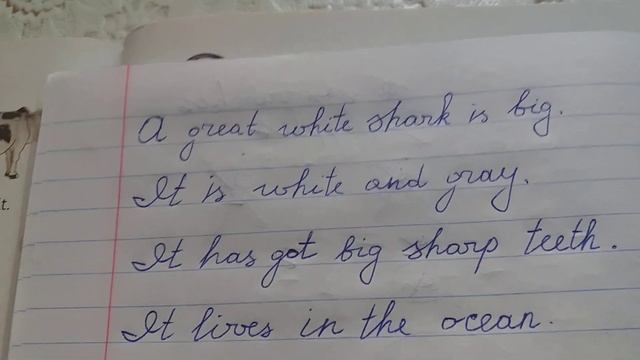 A great white shark is big.
It is white and gray.
It has got big sharp teeth.
It lives in the ocean.
it.